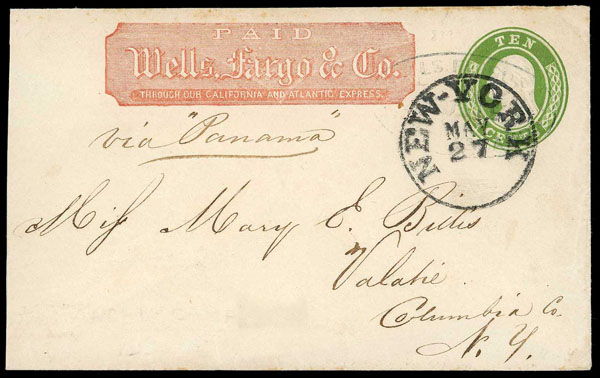 PAID
Wells, Fargo & Co.
THROUGH OUR CALIFORNIA AND ATLANTIC EXPRESS.
TEN
CENTS
NEW-YORK
MAY
27
via "Panama"
Miss Mary E. Bittis
Valatie
Columbia Co.
N. Y.